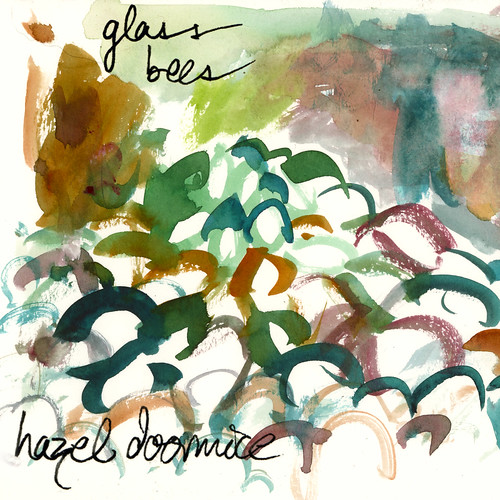 glass
bees
hazel doormice